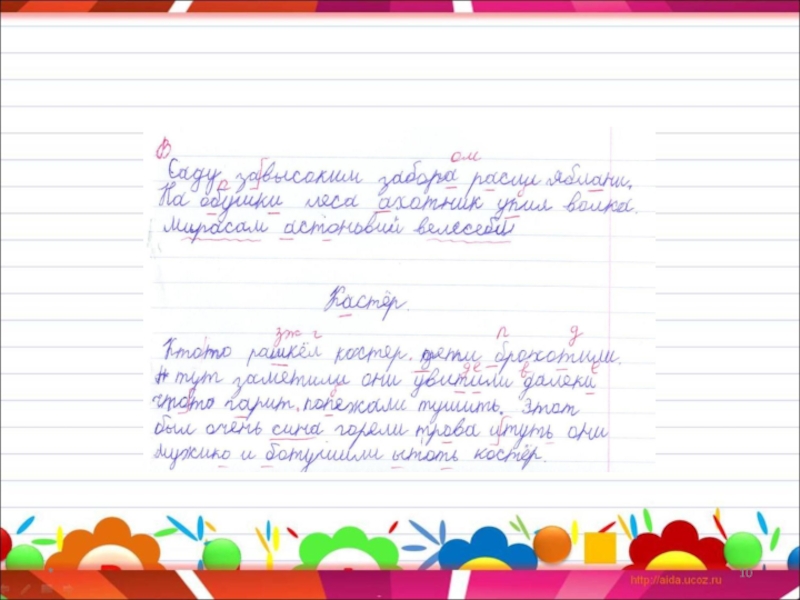 В ом
Саду завысоким забора расли яблани.
На обушки леса ахотник упил волка.
Мирасам астоновий велесебит
Кастёр.
зж г п д
Ктото рашкёл костер. дети брохотили.
И тут заметили они увитили далеки
чтото гарит. попежали тушить. Этот
был очень сина горели трова итуть они
мужико и ботушили ытоть костёр.
10
http://aida.ucoz.ru